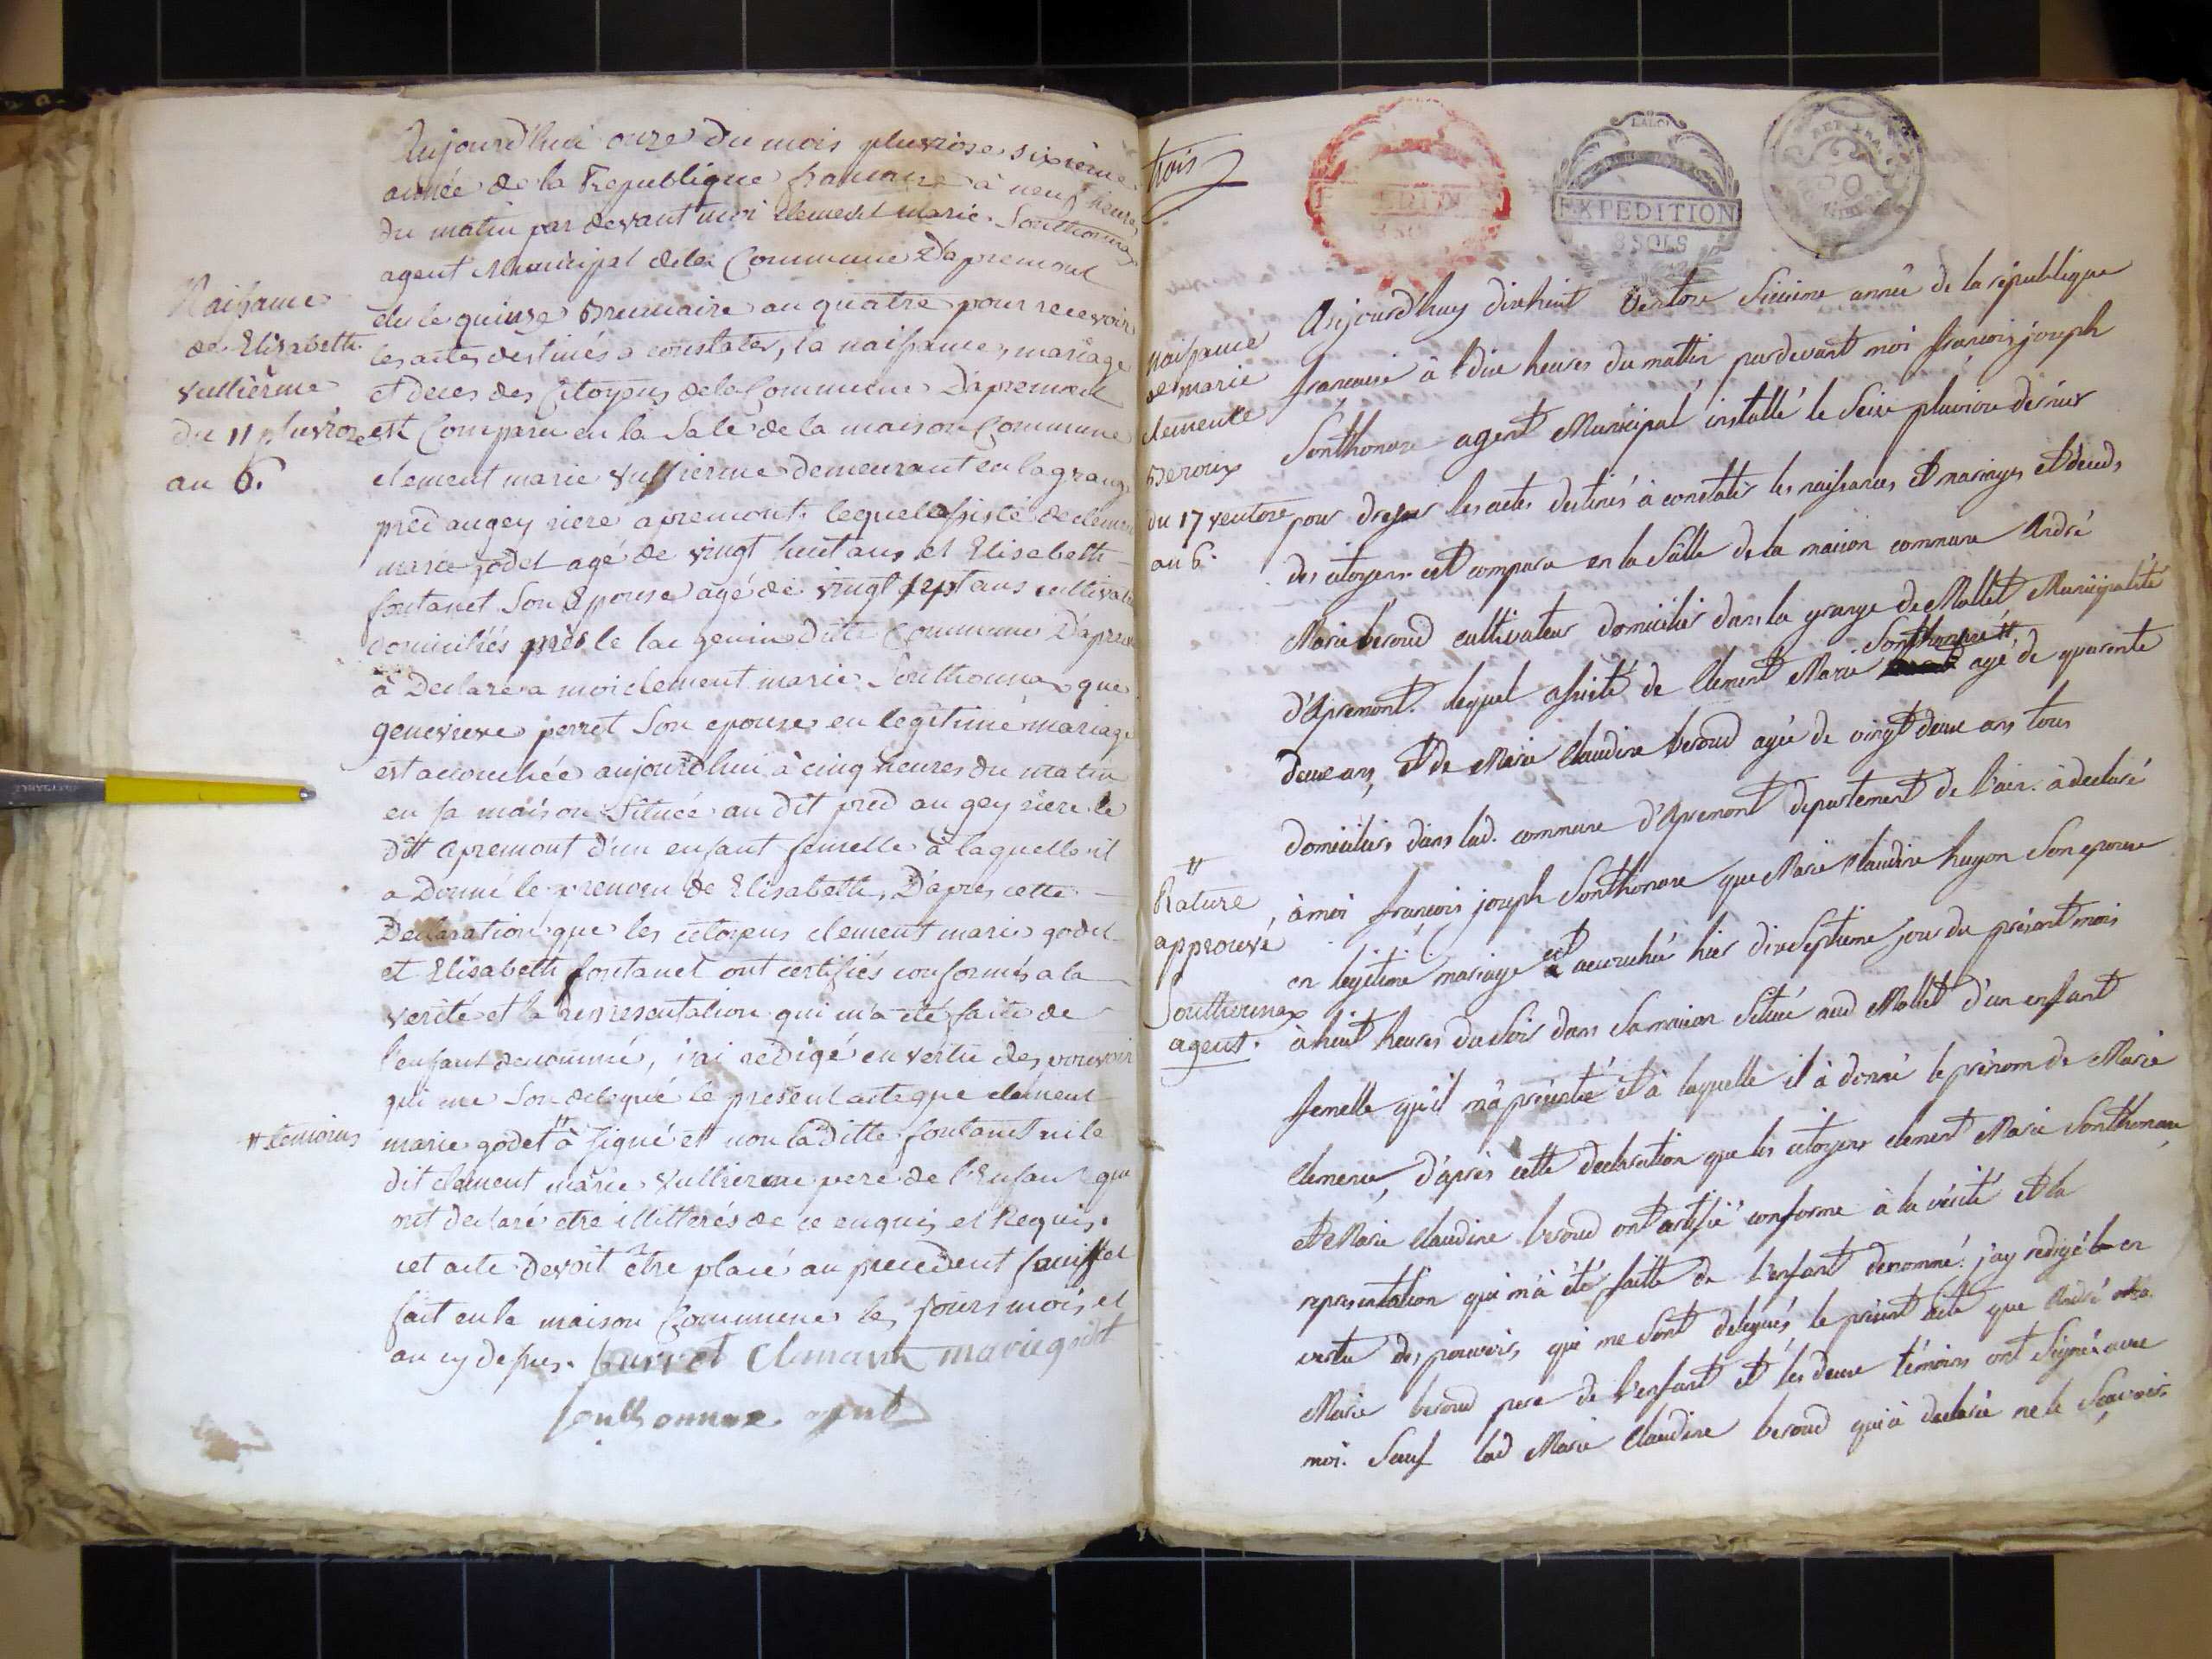 Aujourd'hui onze du mois pluviose sixieme
année de la Republique francaise à neuf heures
du matin par devant moi clement marie Sonthonnax
agent Municipal de la Commune D'apremont
elu le quinze Brumaire an quatre pour recevoir
les actes destinés a constater, la naissance, mariage
et deces des Citoyens de la Commune D'apremont
est Comparu en la Sale de la maison Commune
clement marie Vullierme demeurant en la grange
pred augey riere apremont, lequel assisté de clement
marie godet agé de vingt huit ans et Elisabeth
fontanet Son Epouse agé de vingt sept ans cultivateurs
domiciliés près le lac genin dite Commune D'apremont
à Declare a moi clement marie Sonthonnax que
genevieve perret Son epouse en legitime mariage
est accouchée aujourd'hui à cinq heures du matin
en sa maison Située au dit pred au gey riere le
dit apremont d'un enfant femelle à laquelle il
a Donné le prenom de Elisabeth, D'apres cette
Declaration que les citoyens clement marie godet
et Elisabeth fontanet ont certifiés conformes a la
verité et la representation qui m'a été faite de
l'enfant denommé, j'ai redigé en vertu des pouvoir
qui me Son delegué le present acte que clement
marie godet " à signé et non la ditte fontanet ni le
dit clement marie Vullierme pere de l'Enfant que
ont declaré etre illitterés de ce enquis et Requis.
cet acte devoit être placé au precedent feuillet
fait en la maison Commune les jours mois et
an cy dessus. clemant marie godet
sonthonnax agent
Naissance
de Elisabeth
Vullierme
du 11 pluviose
an 6.
" temoins
trois
EXPEDITION
3 SOLS
Aujourd'huy dixhuit Ventose Sixieme année de la république
francaise à dix heures du mattin pardevant moi francois joseph
Sonthonax agent Municipal installé le Seize pluviose dernier
pour dresser les actes destinés à constater les naissances et mariages et décéds
des citoyens est comparu en la Salle de la maison commune André
Marie beroud cultivateur domicilié dans la grange de Mollet Municipalité
d'Apremont. lequel assisté de Clement Marie Sonthonax " agé de quarente
deux ans, et de Marie Claudine beroud agée de vingt deux ans tous
domiciliés dans lad. commune d'Apremont departement de l'ain. à declaré
à moi francois joseph Sonthonax que Marie Claudine hugon Son epouse
en legitime mariage est accouchée hier dixseptieme jour du présent mois
à huit heures du Soir dans Sa maison Située aud Mollet d'un enfant
femelle qu'il m'à présenté et à laquelle il à donné le prénom de Marie
Clemence, d'après cette declaration que les citoyens clement Marie Sonthonax
et Marie Claudine beroud ont certifié conforme à la vérité et la
representation qui m'à été faitte de l'enfant denommé. j'ay redigé en
vertu des pouvoirs qui me Sont delegués le présent acte que André
Marie beroud pere de l'enfant et les deux témoins ont Signé avec
moi. Sauf lad Marie Claudine beroud qui à declaré ne le Scavoir.
Naissance
de marie
clemence
Beroux
du 17 ventose
an 6.
"
Rature
approuvé
Sonthonnax
agent.